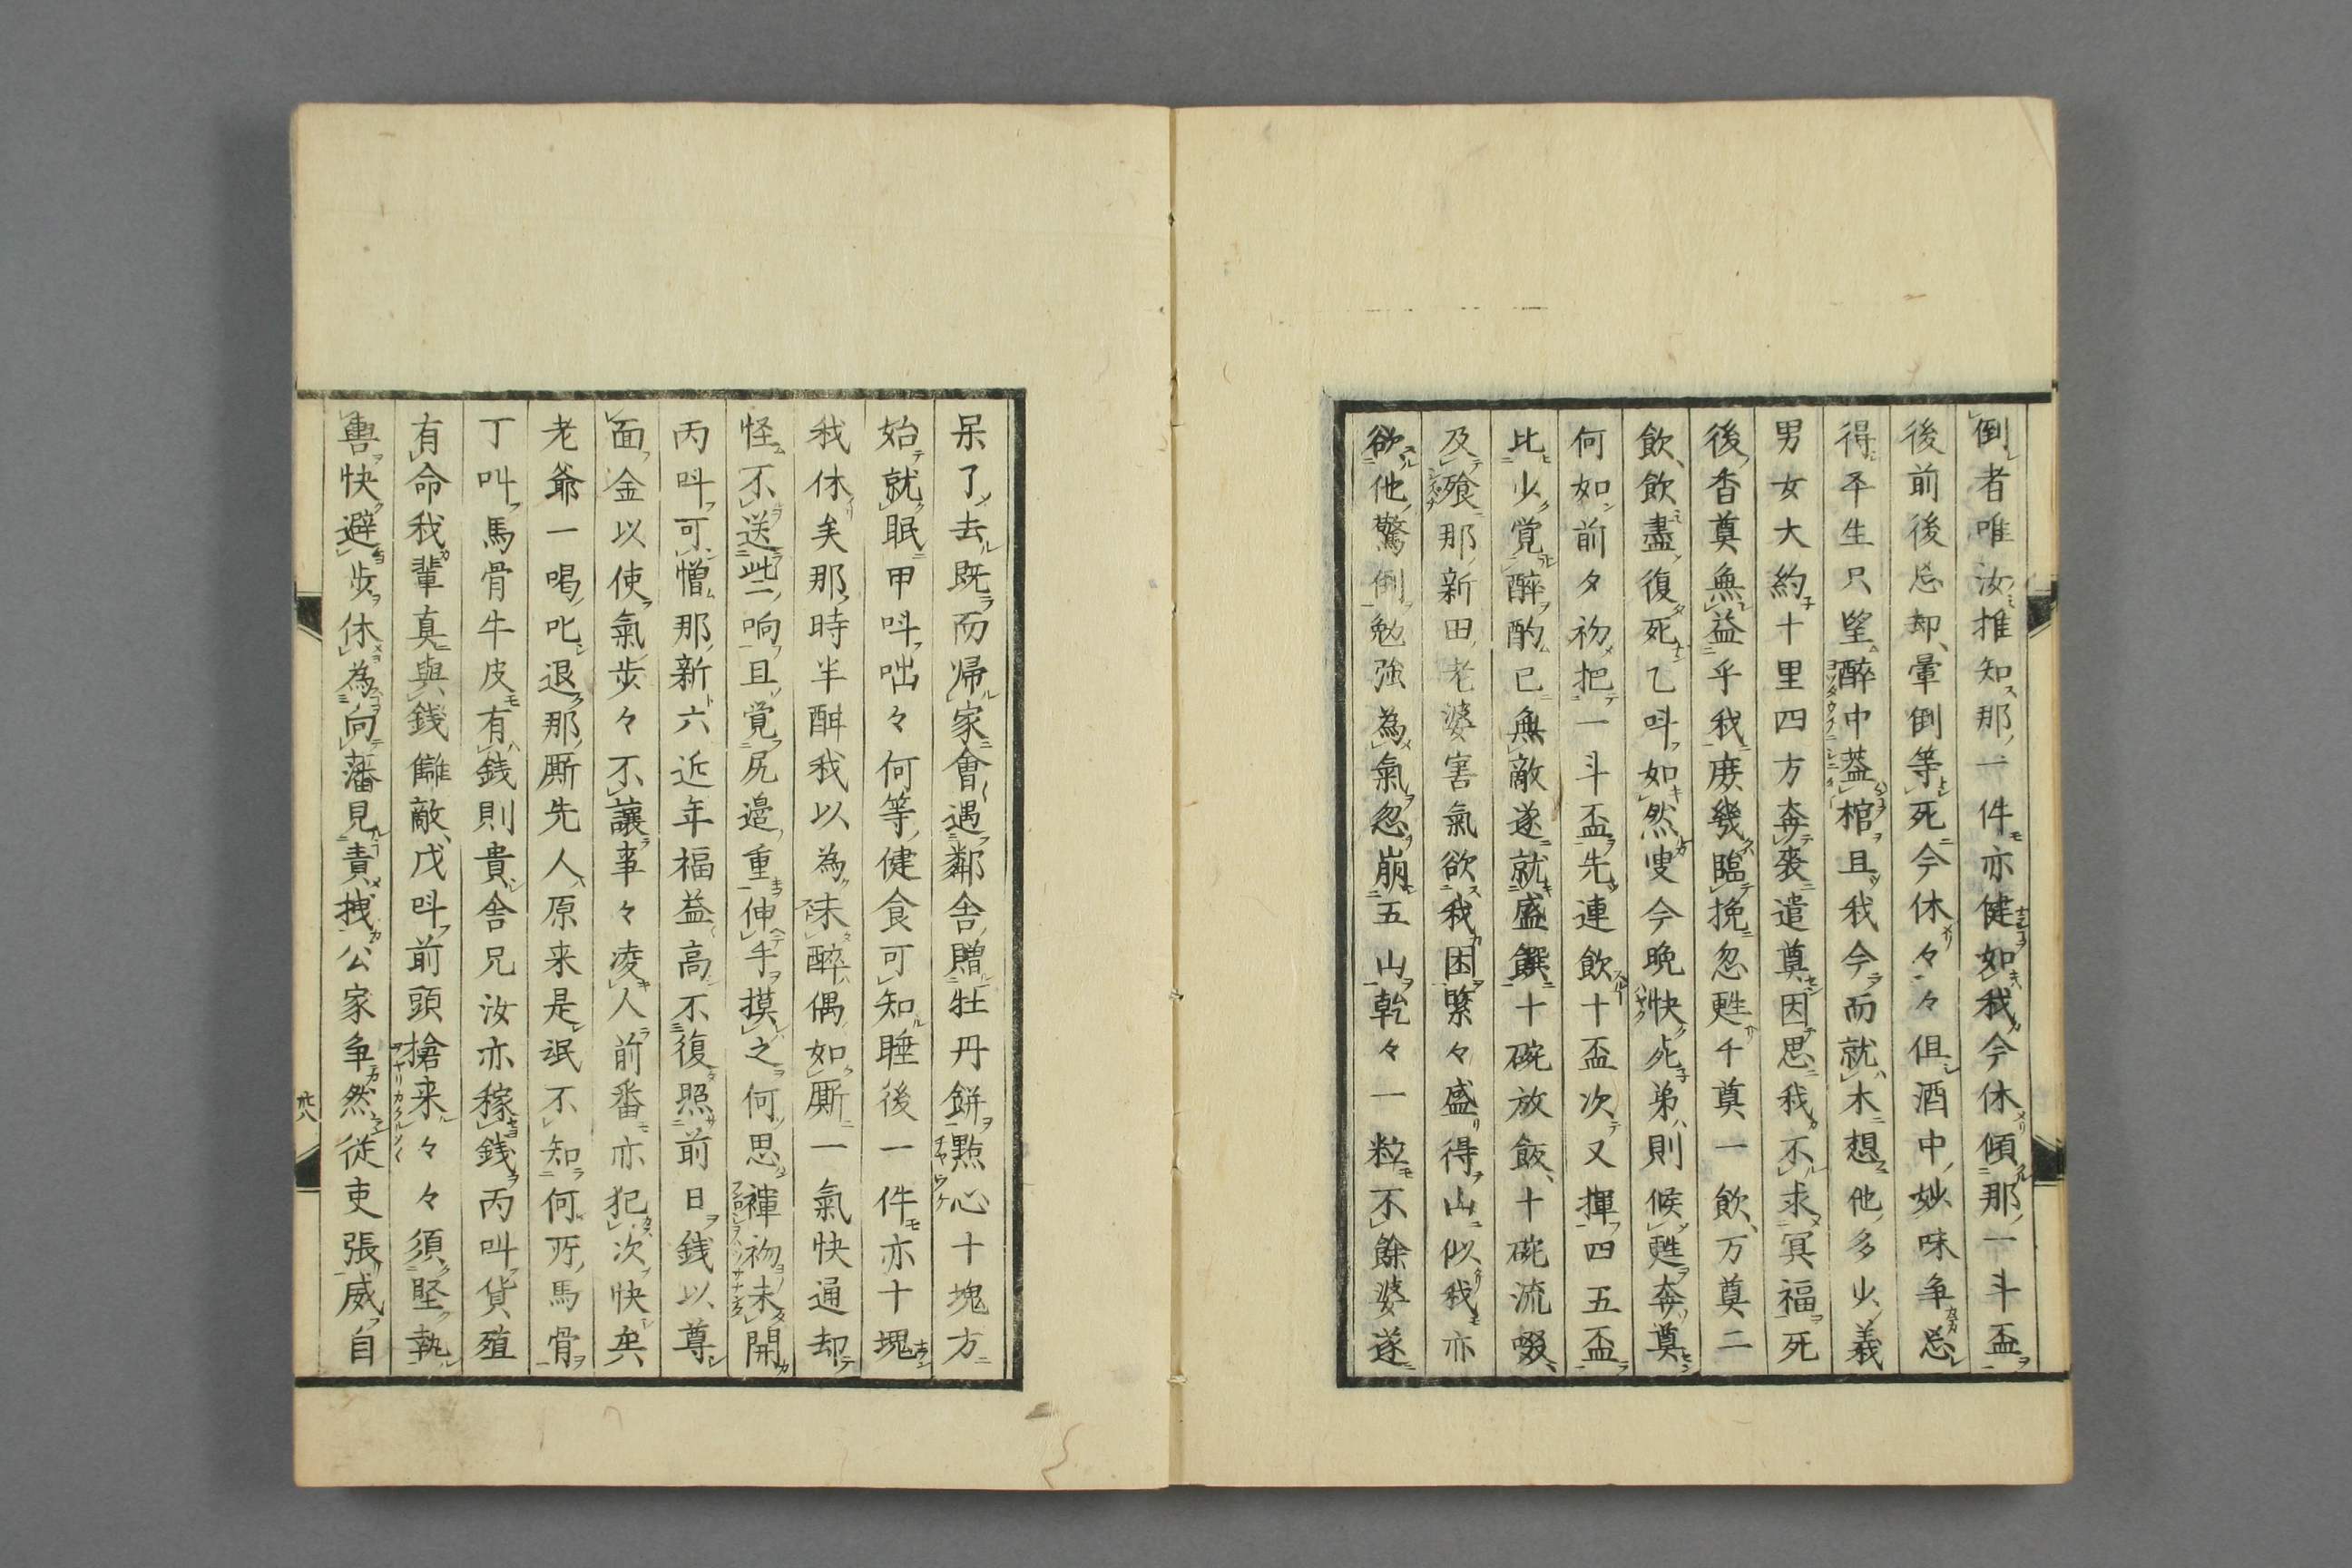 倒者唯汝推知那一件亦健如我今休傾那一斗盃
後前後忘却暈倒等死今休々々但酒中妙味争忘
得平生只望醉中蓋棺且我今而就木想他多少義
男女大約十里四方奔喪遣奠因思我不求冥福死
後香奠無益乎我庶幾臨挽忽甦千奠一飲万奠二
飲飲盡復死乙呌如然叟今晩快死弟則候甦奔奠
何如前夕初把一斗盃先連飲十盃次又揮四五盃
比少覚醉酌已無敵遂就盛饌十碗放飯十碗流啜
及飱那新田老婆害氣欲我困緊々盛得山似我亦
欲他驚倒勉強為氣忽崩五山乾々一粒不餘婆遂
呆了去既而帰家會遇鄰舎贈牡丹餅點心十塊方
始就眠甲呌咄々何等健食可知睡後一件亦十塊
我休矣那時半酣我以為未醉偶如厠一氣快通却
怪不送些响且覚尻邉重伸手摸之何思褌初未開
丙呌可憎那新六近年福益高不復照前日銭以尊
面金以使氣歩々不讓事々凌人前番亦犯次快矣
老爺一喝叱退那厮先人原来是氓不知何所馬骨
丁叫馬骨牛皮有銭則貴舎兄汝亦稼銭丙叫貨殖
有命我輩真與銭讎敵戊呌前頭搶来々々須堅執
轡快避歩休為向藩見責拽公家争然従吏張威自
九八